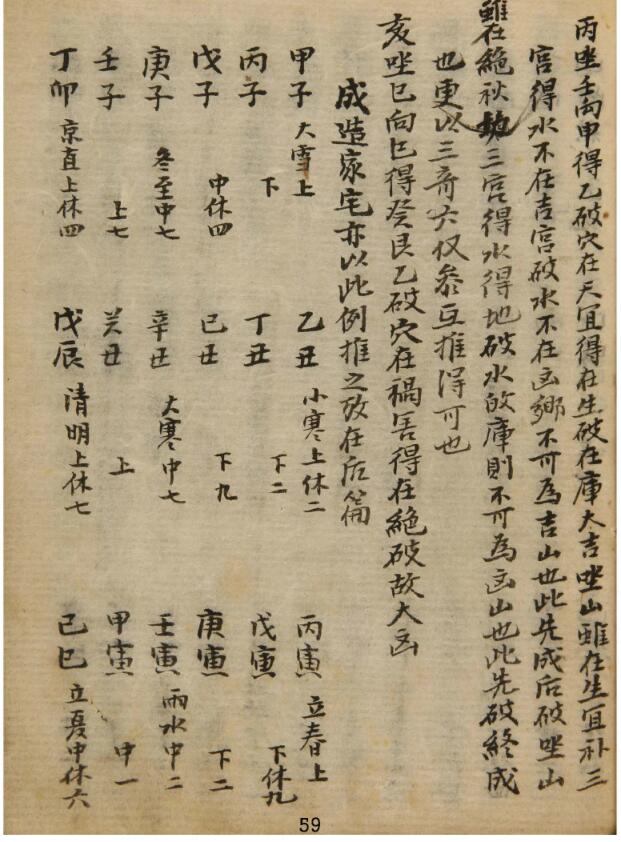 丙坐壬向申得乙破穴在天宜得在生破在庫大吉坐山雖在生宜補三
宮得水不在吉宮破水不在凶鄉不可為吉山也此先成后破坐山
雖在絶秋三宮得水得地破水的庫則不可為凶山也此先破終成
也更以三奇六仪叅互推得可也
亥坐巳向巳得癸艮乙破穴在禍害得在絶破故大凶
成造家宅亦以此例推之攷在后篇
甲子 大雪上 乙丑 小寒上休二 丙寅 立春上
丙子 下 丁丑 下二 戊寅 下休九
戊子 中休四 己丑 下九 庚寅 下二
庚子 冬至中七 辛丑 大寒中七 壬寅 雨水中二
壬子 上七 癸丑 上 甲寅 中一
丁卯 京直上休四 戊辰 清明上休七 己巳 立夏中休六
59